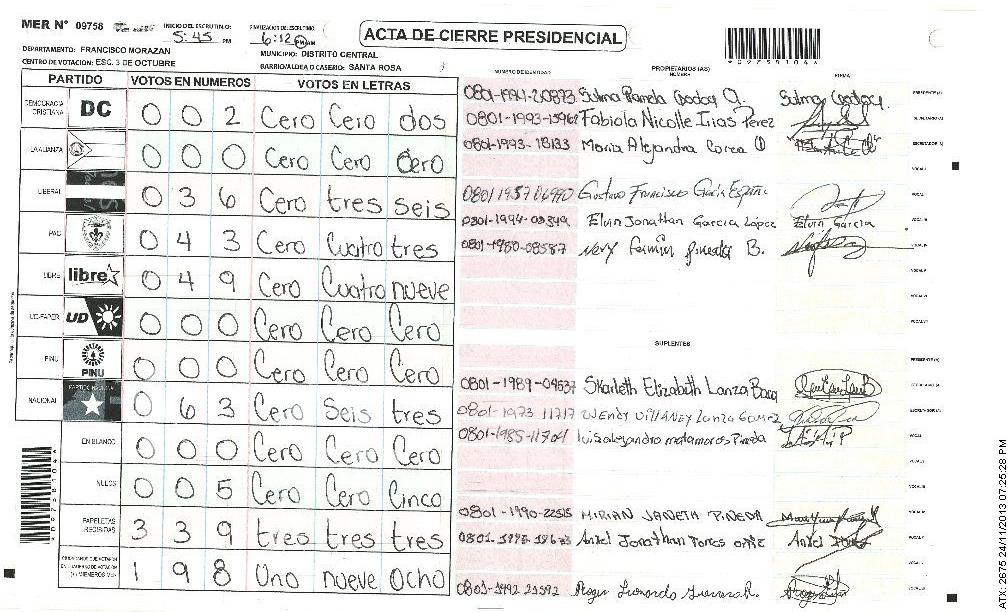 MER N° 09758
INICIO DEL ESCRUTINIO: 5:45 PM
FINALIZACION DEL ESCRUTINIO 6:12 PM AM
ACTA DE CIERRE PRESIDENCIAL
DEPARTAMENTO: FRANCISCO MORAZAN
MUNICIPIO: DISTRITO CENTRAL
CENTRO DE VOTACION: ESC. 3 DE OCTUBRE
BARRIO/ALDEA O CASERIO: SANTA ROSA
*09758104*
PARTIDO VOTOS EN NUMEROS VOTOS EN LETRAS
DEMOCRACIA CRISTIANA DC 0 0 2 Cero Cero dos
LA ALIANZA 0 0 0 Cero Cero Cero
LIBERAL 0 3 6 Cero tres seis
PAC 0 4 3 Cero Cuatro tres
LIBRE libre 0 4 9 Cero Cuatro nueve
UD-FAPER UD 0 0 0 Cero Cero Cero
PINU PINU 0 0 0 Cero Cero Cero
NACIONAL PARTIDO NACIONAL 0 6 3 Cero Seis tres
EN BLANCO 0 0 0 Cero Cero Cero
NULOS 0 0 5 Cero Cero Cinco
PAPELETAS RECIBIDAS 3 3 9 tres tres tres
CIUDADANOS QUE VOTARON EN CUADERNO DE VOTACION (+) MIEMBROS MER 1 9 8 Uno nueve ocho
*09758104*
NUMERO DE IDENTIDAD PROPIETARIOS (AS) NOMBRE FIRMA
0801-1994-20893 Godoy G. PRESIDENTE (A)
Fabiola Nicolle Irias Perez SECRETARIO (A)
0801-1993-18133 Maria Alejandra Correa O ESCRUTADOR (A)
VOCAL I
Gustavo Francisco VOCAL II
Elvin Jonathan Garcia López Elvin Garcia VOCAL III
0801-1980-08587 Nery Fermin Pineda B. VOCAL IV
VOCAL V
VOCAL VI
VOCAL VII
SUPLENTES
PRESIDENTE (A)
0801-1989-04537 Skarleth Elizabeth Lanza SECRETARIO (A)
0801-1973 11717 Wendy Lanza Gomez ESCRUTADOR (A)
0801-1985-11704 luis alejandro matamoros Pineda VOCAL I
VOCAL II
VOCAL III
MIRIAN JANETH PINEDA VOCAL IV
Jonathan Torres VOCAL V
VOCAL VI
VOCAL VII
ATX-2675 24/11/2013 07:25:28 PM